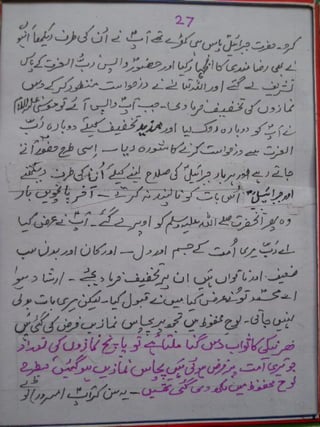 27
کرو۔ حضرت جبرائیلؑ پاس ہی کھڑے تھے آپؐ نے اُن کی طرف دیکھا اُنہوں
نے بھی رضا مندی کا اظہار کیا اور حضورؐ واپس ربُّ العزت کے پاس
تشریف لے گئے اور اللہ تعالیٰ نے درخواست منظور کر کے دس
نمازوں کی تخفیف فرما دی۔ جب آپؐ واپس آئے تو موسیٰ علیہ السلام
نے آپؐ کو دوبارہ روک لیا اور مزید تخفیف کیلئے دوبارہ ربُّ
العزت سے درخواست کرنے کا مشورہ دیا۔ اسی طرح حضورؐ آتے
جاتے رہے اور ہر بار جبرائیلؑ کی صلاح لینے کیلئے اُن کی طرف دیکھتے
اور جبرائیلؑ اُس بات کو ناپسند نہ کرتے۔ آخر پانچویں بار
وہ پھر آنحضرت صلے اللہ علیہ وسلم کو اوپر لے گئے۔ آپؐ نے عرض کیا
اے ربّ میری اُمت کے جسم اور دل۔ اور کان اور بدن سب
ضعیف اور ناتواں ہیں ان پر تخفیف فرما دیجئے۔ ارشاد ہوا
اے محمدؐ تو نے عرض کیا میں نے قبول کیا۔ لیکن میری بات ہوئی
نہیں جاتی۔ لوح محفوظ میں تجھ پر پچاس نمازیں فرض کی گئی تھیں
ہر نیکی کا ثواب دس گنا ملتا ہے تو پانچ نمازوں کی تعداد
جو تیری امت پر فرض ہوئی ہیں پچاس نمازیں ہو گئیں جس طرح
لوح محفوظ میں لکھ دی گئی تھیں۔ یہ سن کر آپؐ